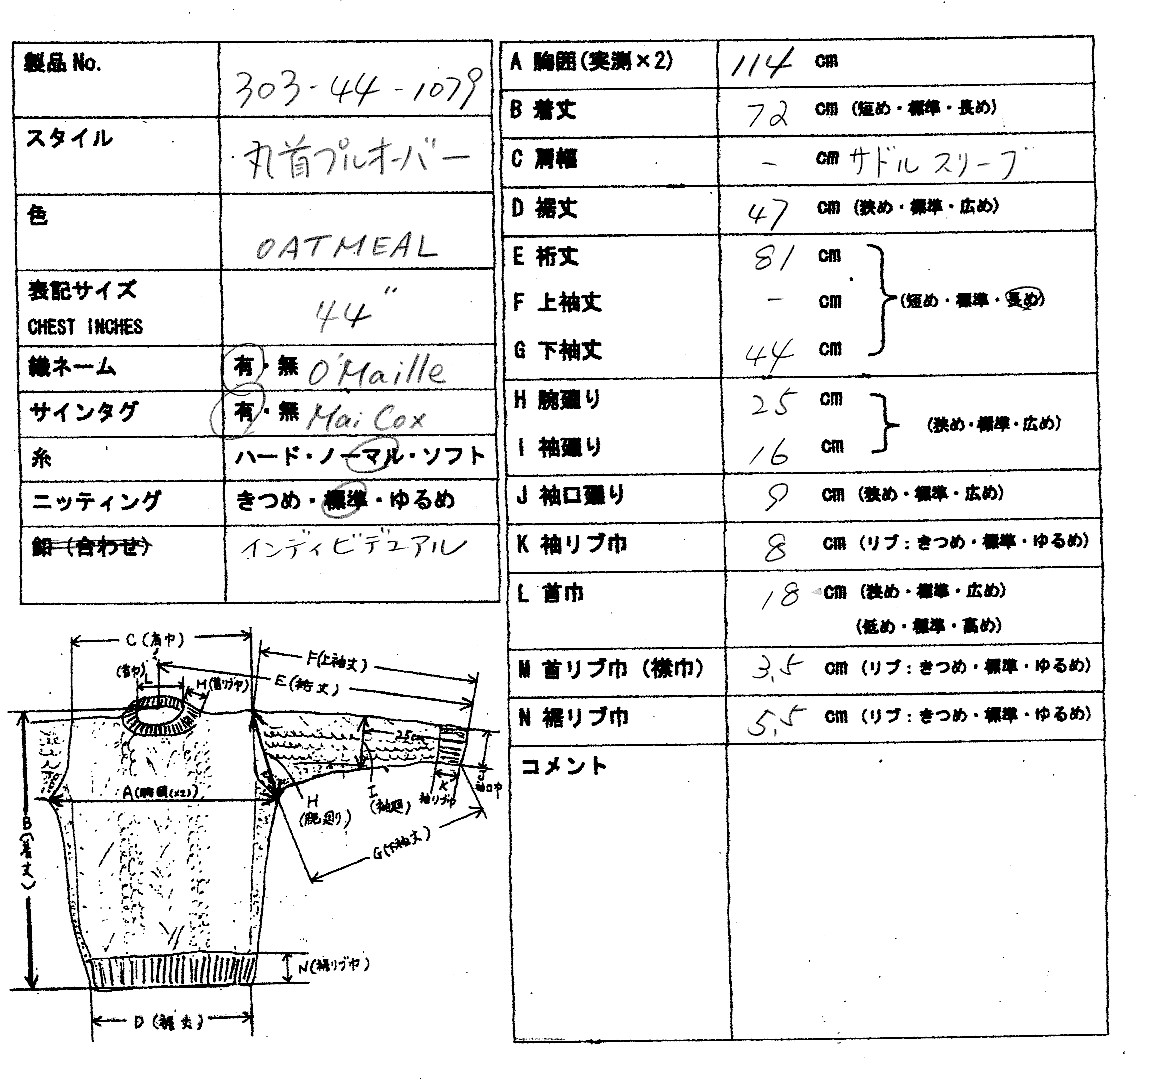 製品No. 303-44-1079
スタイル 丸首プルオーバー
色 OATMEAL
表記サイズ 44"
CHEST INCHES
織ネーム 有・無 O'Maille
サインタグ 有・無 Mai Cox
糸 ハード・ノーマル・ソフト
ニッティング きつめ・標準・ゆるめ
釦(合わせ) インディビデュアル
A 胸囲(実測×2) 114 cm
B 着丈 72 cm (短め・標準・長め)
C 肩幅 - cm サドルスリーブ
D 裾丈 47 cm (狭め・標準・広め)
E 裄丈 81 cm
F 上袖丈 - cm (短め・標準・長め)
G 下袖丈 44 cm
H 腕廻り 25 cm
(狭め・標準・広め)
I 袖廻り 16 cm
J 袖口廻り 9 cm (狭め・標準・広め)
K 袖リブ巾 8 cm (リブ:きつめ・標準・ゆるめ)
L 首巾 18 cm (狭め・標準・広め)
(低め・標準・高め)
M 首リブ巾(襟巾) 3.5 cm (リブ:きつめ・標準・ゆるめ)
N 裾リブ巾 5.5 cm (リブ:きつめ・標準・ゆるめ)
コメント
C(肩巾)
F(上袖丈)
(首巾)
L
M(首リブ巾)
E(裄丈)
25cm
A(胸囲(×2))
H
(腕廻り)
I
(袖廻)
K
袖リブ巾
J
袖口巾
B(着丈)
G(下袖丈)
N(裾リブ巾)
D(裾丈)